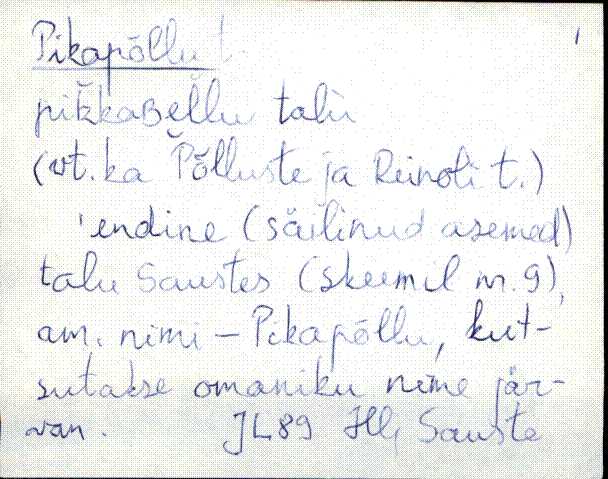 Pikapõllu t. 1
pikkaBeĺlu talù
(vt. ka Põlluste ja Reinoli t.)
'endine (säilinud asemed)
talu Saustes (skeemil nr. 9),
am. nimi – Pikapõllu, kut-
sutakse omaniku nime jär-
van. JL89 Hlj Sauste